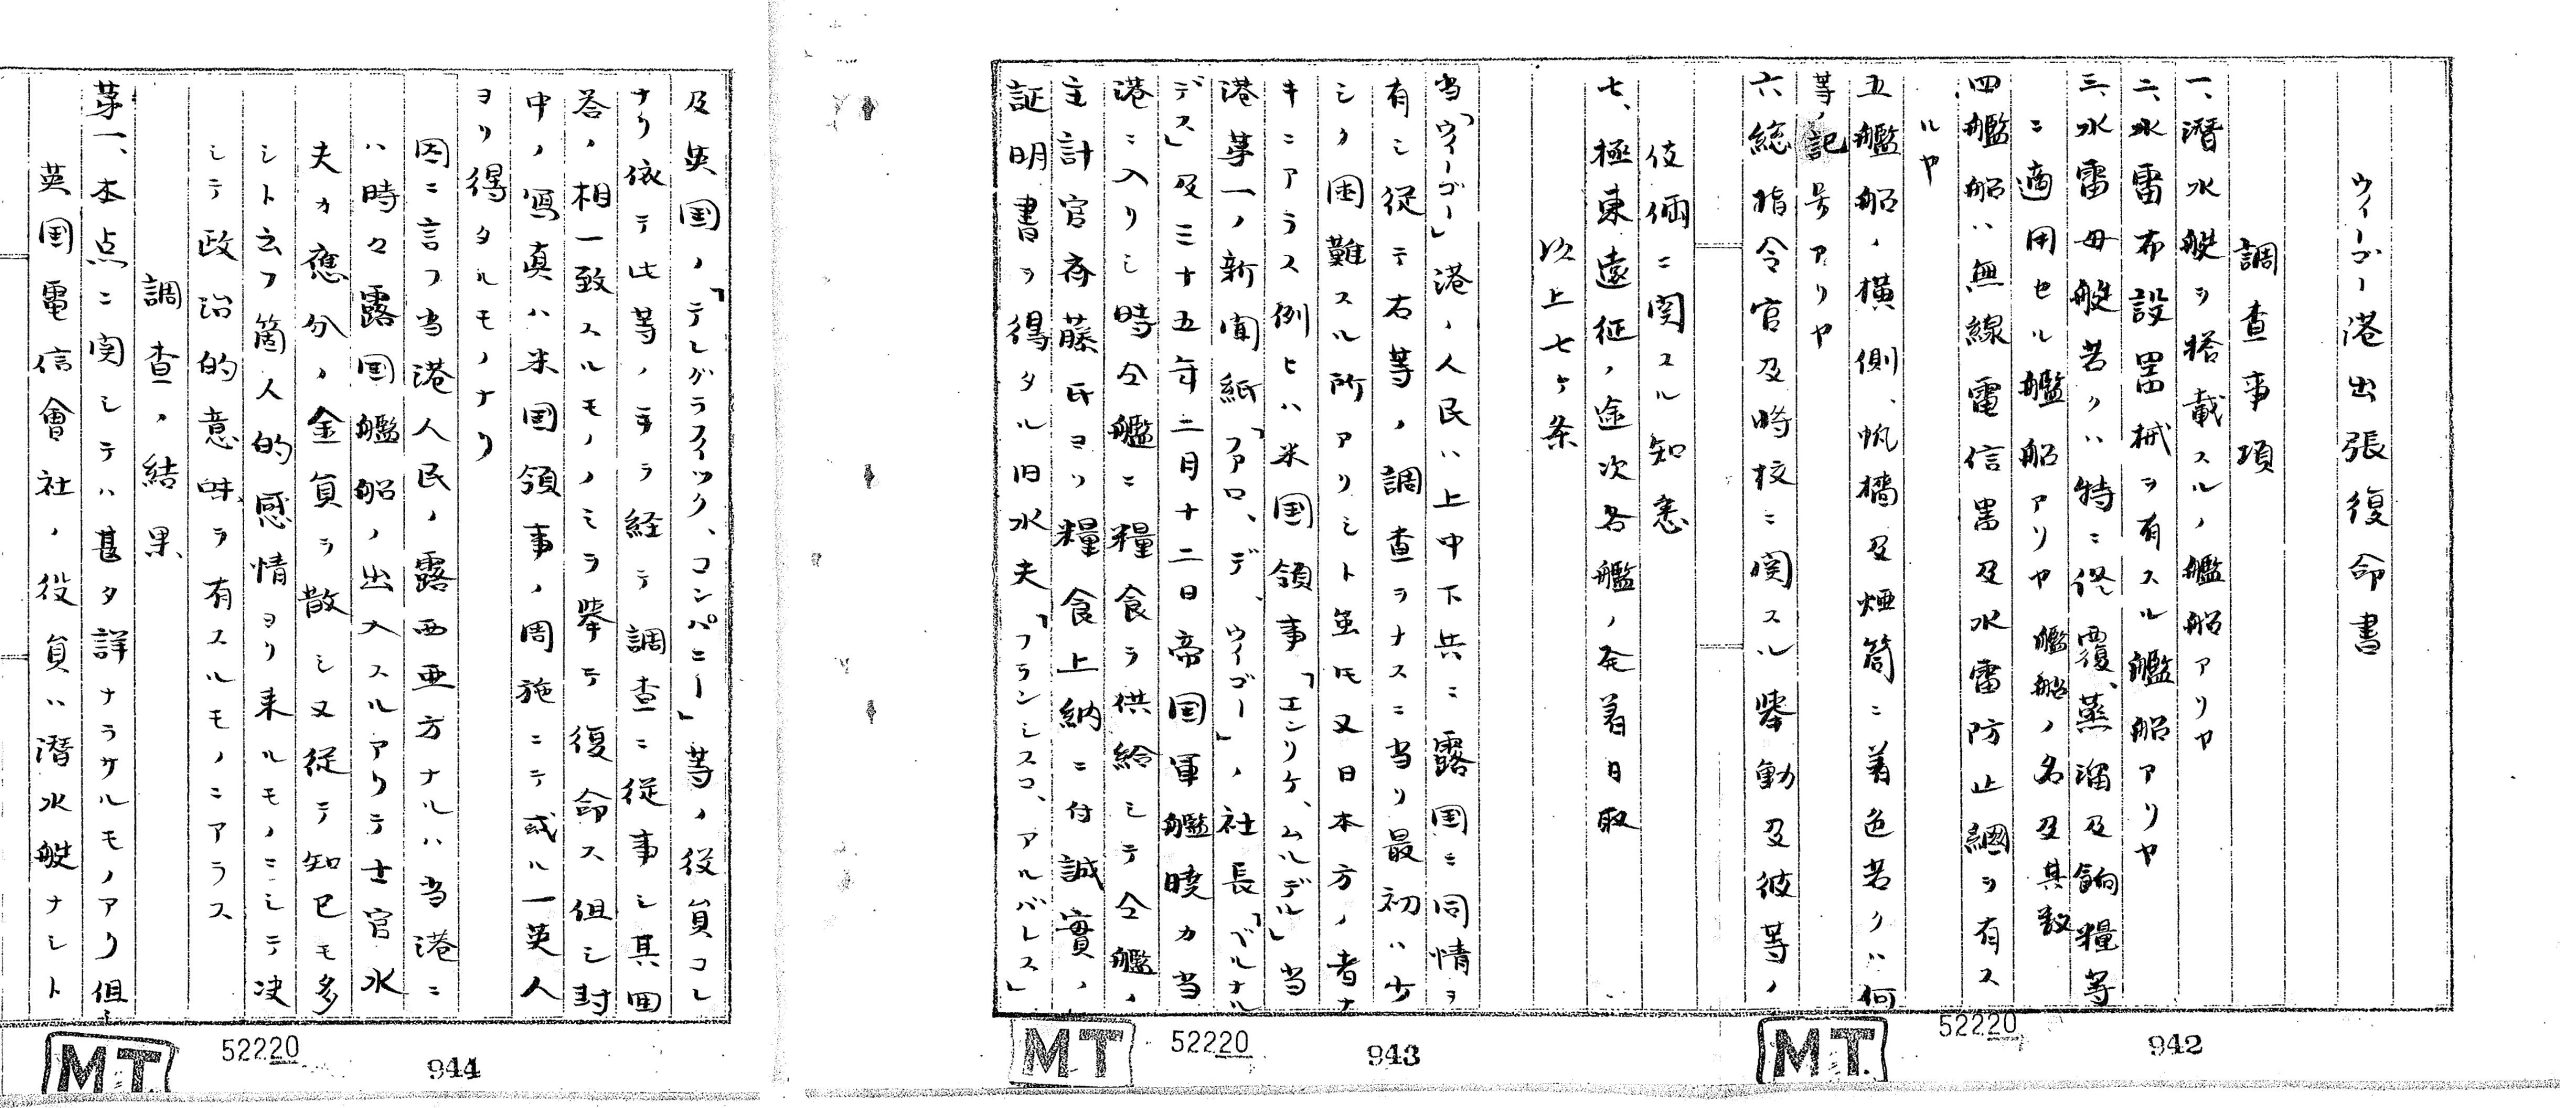 ウィーゴー港出張復命書
調査事項
一、潜水艇ヲ搭載スルノ艦船アリヤ
二、水雷布設器械ヲ有スル艦船アリヤ
三、水雷母艇若クハ特ニ修覆、蒸溜及餉糧等
ニ適用セル艦船アリヤ艦船ノ名及其数
四、艦船ハ無線電信器及水雷防止網ヲ有ス
ルヤ
五艦船ノ横側、帆檣及煙筒ニ着色若クハ何
等ノ記号アリヤ
六総指令官及将校ニ関スル挙動及彼等ノ
伎倆ニ関スル知悉
七、極東遠征ノ途次各艦ノ発着日取
以上七ヶ条
当「ウィーゴー」港ノ人民ハ上中下共ニ露国ニ同情ヲ
有シ従テ右等ノ調査ヲナスニ当リ最初ハ少
シク困難スル所アリシト虽モ又日本方ノ者ナ
キニアラス例ヒハ米国領事「エンリケ、ムルデル」当
港第一ノ新聞紙「ファロ、デ、ウィゴー」ノ社長「ベルナル
デス」及三十五年二月十二日帝国軍艦暁カ当
港ニ入リシ時仝艦ニ糧食ヲ供給シテ仝艦ノ
主計官斉藤氏ヨリ糧食上納ニ付誠實ノ
証明書ヲ得タル旧水夫「フランシスコ、アルバレス」
52220
942
52220
943
M T.
M T
及英国ノ「テレグラフィック、コンパニー」等ノ役員コレ
ナリ依テ此等ノ手ヲ経テ調査ニ従事シ其回
答ノ相一致スルモノノミヲ挙テ復命ス但シ封
中ノ寫真ハ米国領事ノ周施ニテ或ル一英人
ヨリ得タルモノナリ
因ニ言フ当港人民ノ露西亜方ナルハ当港ニ
ハ時々露国艦船ノ出入スルアリテ士官水
夫カ應分ノ金員ヲ散シ又従テ知己モ多
シト云フ箇人的感情ヨリ来ルモノニシテ决
シテ政治的意味ヲ有スルモノニアラス
調査ノ結果
第一、本点ニ関シテハ甚タ詳ナラサルモノアリ但シ
英国電信會社ノ役員ハ潜水艇ナシト
52220
944
M T.